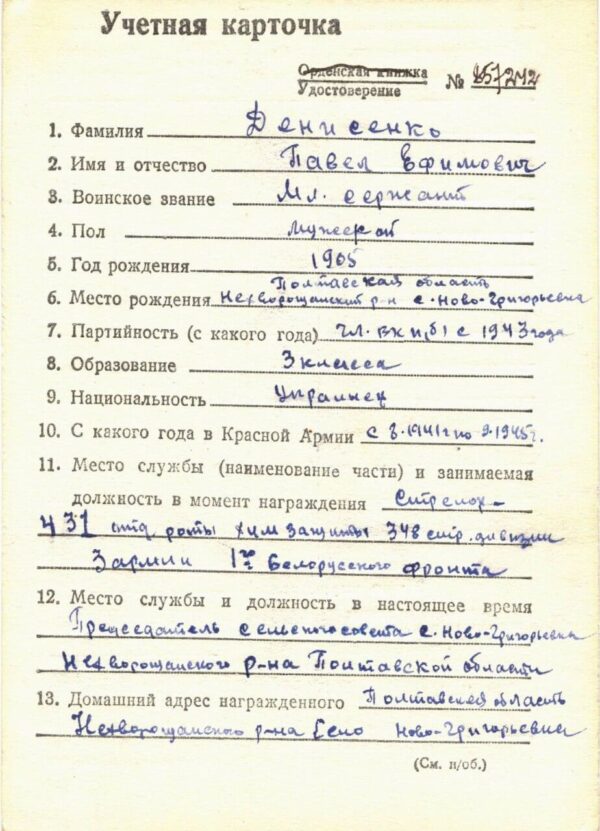 Учетная карточка
Орденская книжка
Удостоверение № 857272
1. Фамилия Денисенко
2. Имя и отчество Павел Ефимович
3. Воинское звание Мл. сержант
4. Пол мужской
5. Год рождения 1905
Полтавская область
6. Место рождения Нехворощанский р-н с. Ново-Григорьевка
7. Партийность (с какого года) чл. вкп(б) с 1943 года
8. Образование 3 класса
9. Национальность Украинец
10. С какого года в Красной Армии с 8.1941г по 9.1945г.
11. Место службы (наименование части) и занимаемая
должность в момент награждения Стрелок-
431 отд роты хим защиты 348 стр. дивизии
3 армии 1го Белорусского фронта
12. Место службы и должность в настоящее время
Председатель сельского совета с. Ново-Григорьевка
Нехворощанского р-на Полтавской области
13. Домашний адрес награжденного Полтавская область
Нехворощанского р-на Село Ново-Григорьевка
(См. н/об.)